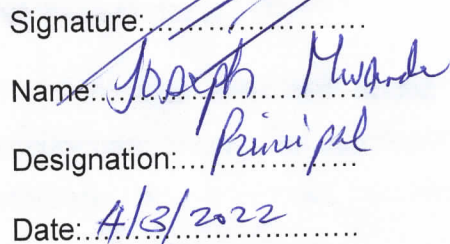 Signature:......................
Name: Joseph Mwanda
Designation:... Principal
Date: 4/3/2022